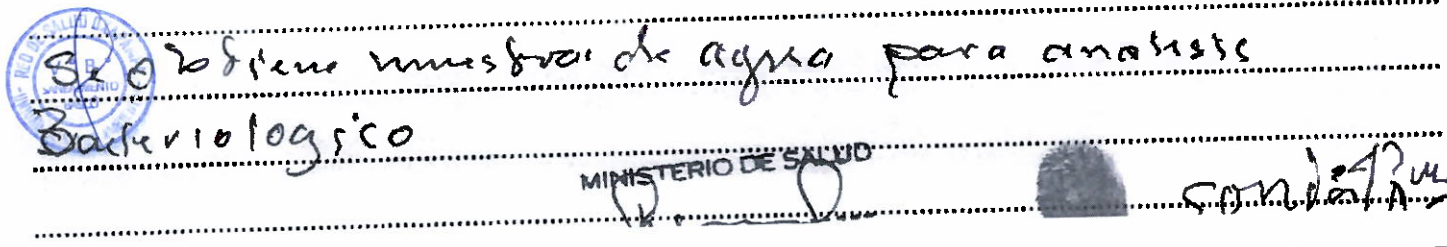 Se obtiene muestra de agua para analisis
Bacteriologico
MINISTERIO DE SALUD